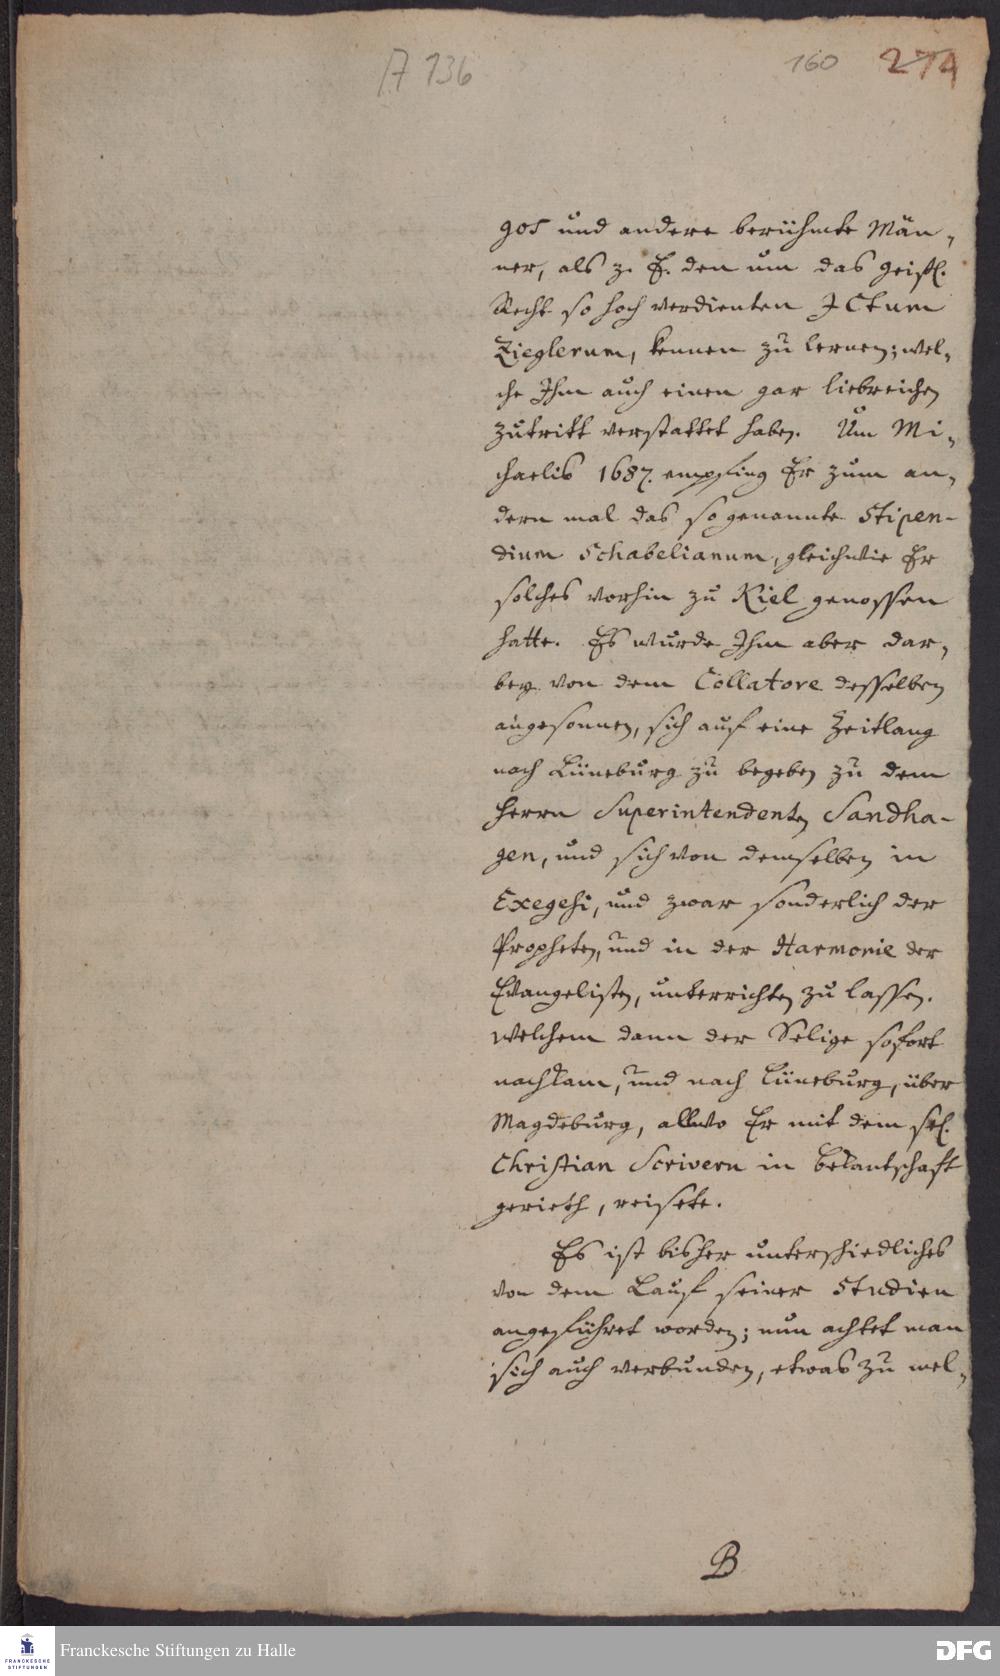 A 136
160 274
gos und andere berühmte Män-
ner, als z. E. den um das geistl.
Recht so hoch verdienten JCtum
Zieglerum, kennen zu lernen; wel-
che Ihm auch einen gar liebreichen
zutritt verstattet haben. Um Mi-
chaelis 1687. empfing Er zum an-
dern mal das so genannte Stipen-
dium Schabelianum, gleichwie Er
solches vorhin zu Kiel genossen
hatte. Es wurde Ihm aber dar-
bey von dem Collatore desselben
angesonnen, sich auf eine Zeitlang
nach Lüneburg zu begeben zu dem
Herrn Superintendenten Sandha-
gen, und sich von demselben in
Exegesi, und zwar sonderlich der
Propheten, und in der Harmonie der
Evangelisten, unterrichten zu lassen.
Welchem dann der Selige sofort
nachkam, und nach Lüneburg, über
Magdeburg, allwo Er mit dem sel.
Christian Scrivern in bekantschaft
gerieth, reisete.
Es ist bisher unterschiedliches
von dem Lauf seiner Studien
angeführet worden; nun achtet man
sich auch verbunden, etwas zu mel-
B
FRANCKESCHE
STIFTUNGEN
Franckesche Stiftungen zu Halle
DFG